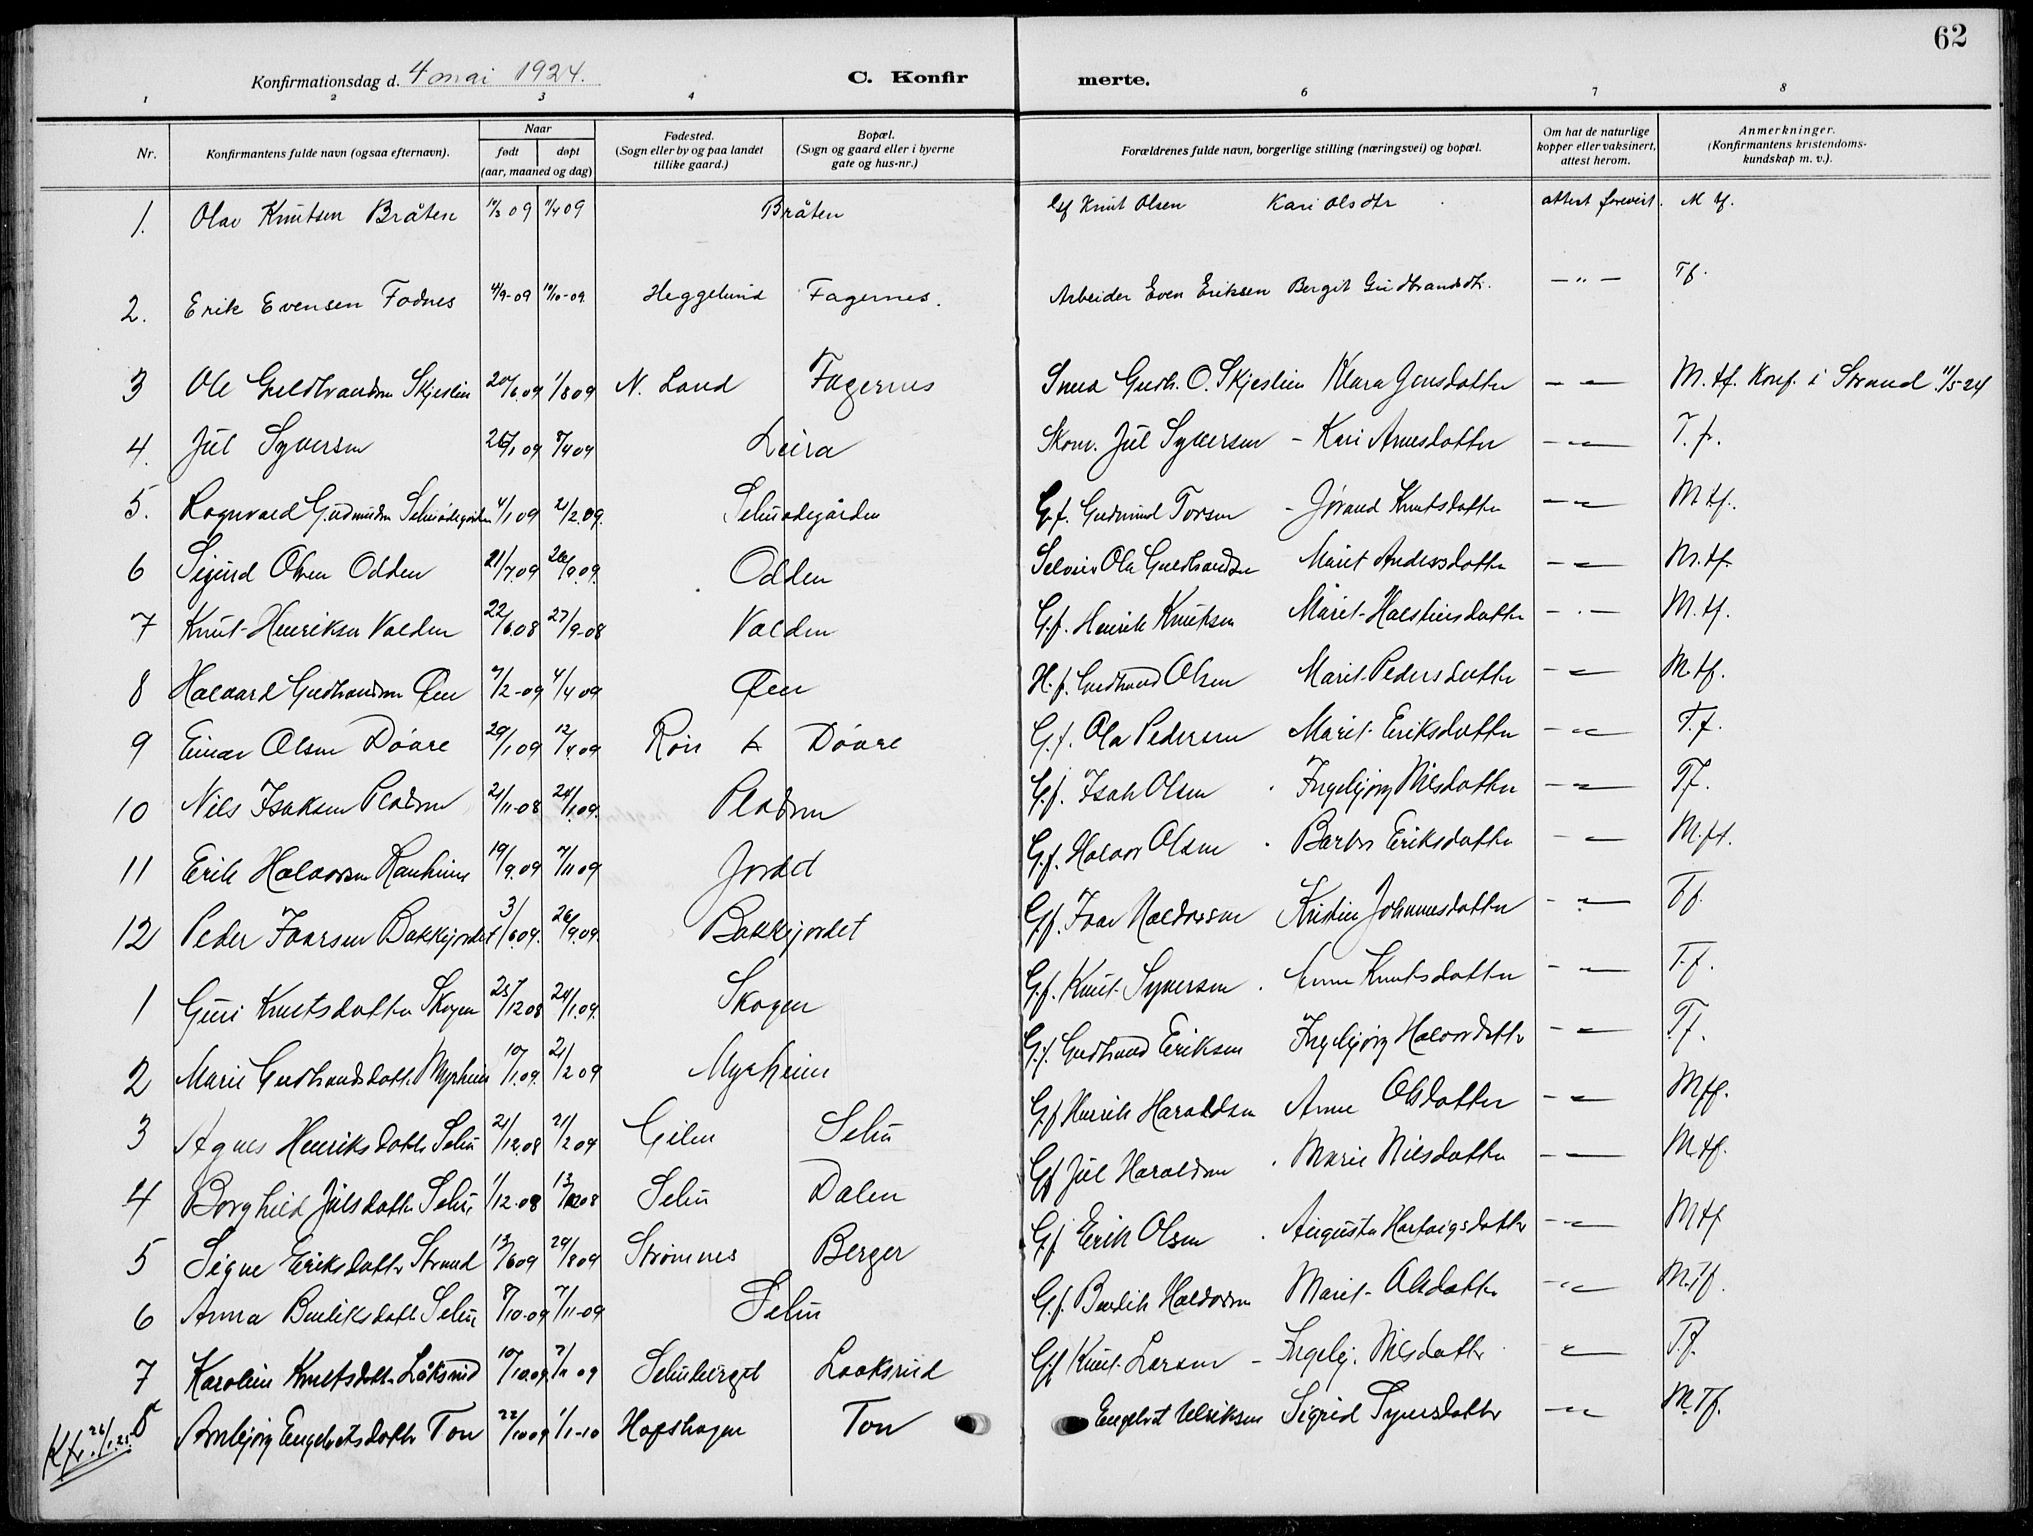 62
Konfirmationsdag d. 4 mai 1924.
C. Konfirmerte.
1 2 3 4 6 7 8
Nr.
Konfirmantens fulde navn (ogsaa efternavn).
Naar
født døpt
(aar, maaned og dag)
Fødested.
(Sogn eller by og paa landet
tillike gaard.)
Bopæl.
(Sogn og gaard eller i byerne
gate og hus-nr.)
Forældrenes fulde navn, borgerlige stilling (næringsvei) og bopæl.
Om hat de naturlige
kopper eller vaksinert,
attest herom.
Anmerkninger.
(Konfirmantens kristendoms-
kundskap m. v.).
1. Olav Knutsen Bråten 09 11/4 09 Bråten Knut Olsen Kari Olsdtr attest forevist. M tf.
2. Erik Evensen Fodnes 4/9-09 10/10-09 Heggelund Fagernes. Arbeider Even Eriksen Bergit Gudbrandsdtr. — " — Tf.
3 Ole Guldbrandsen Skjeslien 20/6.09 1/8 09 N. Land Fagernes Gudb. O. Skjeslien Klara Jensdatter — " — M.tf. Konf. i Strand 11/5-24
4. Jul Syversen 26/1 09 4 09 Leira Skom. Jul Syversen - Kari Arnesdotter — " — T.f.
5. Ragnvald Gudmundsen 4/1 09 21/2.09. G.f. Gudmund Torsen - Jørand Knutsdatter — " — M.tf.
6 Sigurd Olsen Odden 21/7 09 26/9.09. Odden Ola Guldbrandsen Marit Andersdatter — " — M.tf.
7 Knut Henriksen Volden 22/6.08 27/9-08 Volden G.f. Henrik Knutsen Marit Halstensdatter - . — M.tf.
8 Halvard Gudbrandsen Øen 7/2-09 4/4 09 Øen H.f. Gudbrand Olsen Marit Pedersdatter — " — M.tf.
9 Einar Olsen Døvre 29/1 09 12/4.09 Røn Døvre G.f. Ola Pedersen Marit Eriksdatter — " — T.f.
10 Nils Isaksen Pladsen 21/11-08 24/1.09. Pladsen G.f. Isak Olsen Ingebjørg Nilsdatter — " — Tf.
11 Erik Halvorsen Ranheim 19/9.09 7/11 09 Jordet G.f. Halvor Olsen Barbro Eriksdatter — " — M.ft.
12 Peder Ivarsen Bakkjordet 3/6.09. 26/9.09. Bakkjordet G.f. Ivar Haldorsen Kristin Johannesdatter — " — Tf.
1 Guri Knutsdatter Skogen 25/12 08 24/1.09. Skogen G.f. Knut Syversen Anne Knutsdatter — " — T.f.
2 Marie Gudbrandsdatter Myrheim 10/1.09. 21/2 09 Myrheim G.f. Gudbrand Eriksen Ingebjørg Halvorsdatter — " — T.f.
3 Agnes Henriksdatter Seliu 21/12.08 21/2 09 Gilen Seliu G.f Henrik Haraldsen Anne Olsdatter — " — M.tf.
4 Borghild Julsdatter Seliu 1/12.08 13/ 08 Seliu Dalen Gf Jul Haraldsen Marie Nilsdatter — " — M.tf.
5 Signe Eriksdatter Strand 13/6 09 29/8 09 Strømnes Berger G.f Erik Olsen Augusta Hartvigsdatter — " — M tf
6 Anna Bendiksdatter Seliu 8/10-09 7/11-09 Seliu G.f. Bendik Haldorsen Marit Olsdatter — " M.tf.
7 Karoline Knutsdatter Låksrud 10/10.09 7/11 09 Seliuberget Laaksrud G.f Knut Larsen - Ingebj. Nilsdatter " T.f.
8 Arnbjørg Engebretsdatter Ton 22/10 09 1/1-10 Hofshagen Ton Engebret Ulriksen Sigrid Syversdatter — " M.Tf.
Kfr. 26/1.25.